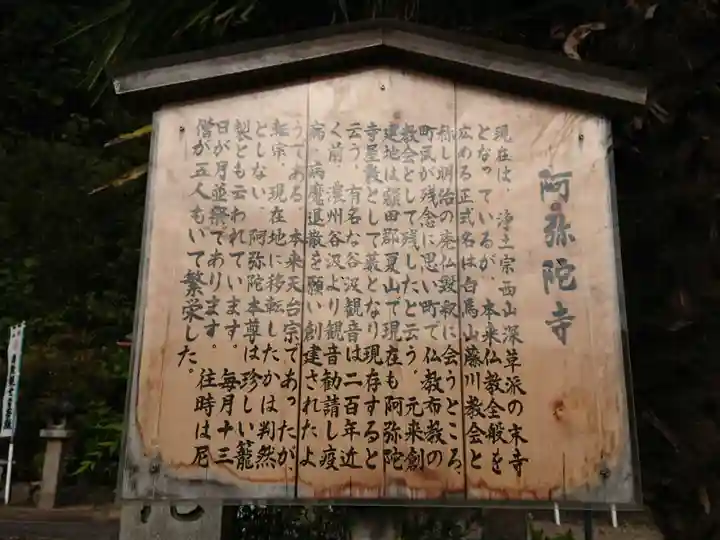 阿弥陀寺
現在は、浄土宗西山深草派の末寺
となっているが、本来仏教全般を
広める正式名は白馬山藤川教会と
称し明治の廃仏毀釈に会うところ、
町民が残念に思い町で仏教布教の
教会として残したと云う。元来創
建地は額田郡夏山で現在も阿弥陀
寺屋敷として藪となり現存すると
云う。有名な谷汲観音は二百年近
く前、濃州谷汲より観音勧請し疫
病、病魔退散を願い創建されたよ
うである。本来天台宗であったが、
転宗、現在地に移転したかは判然
としない。阿弥陀本尊は珍しい籠
製とも云われています。毎月十三
日が月並祭であります。往時は尼
僧が五人もいて繁栄した。